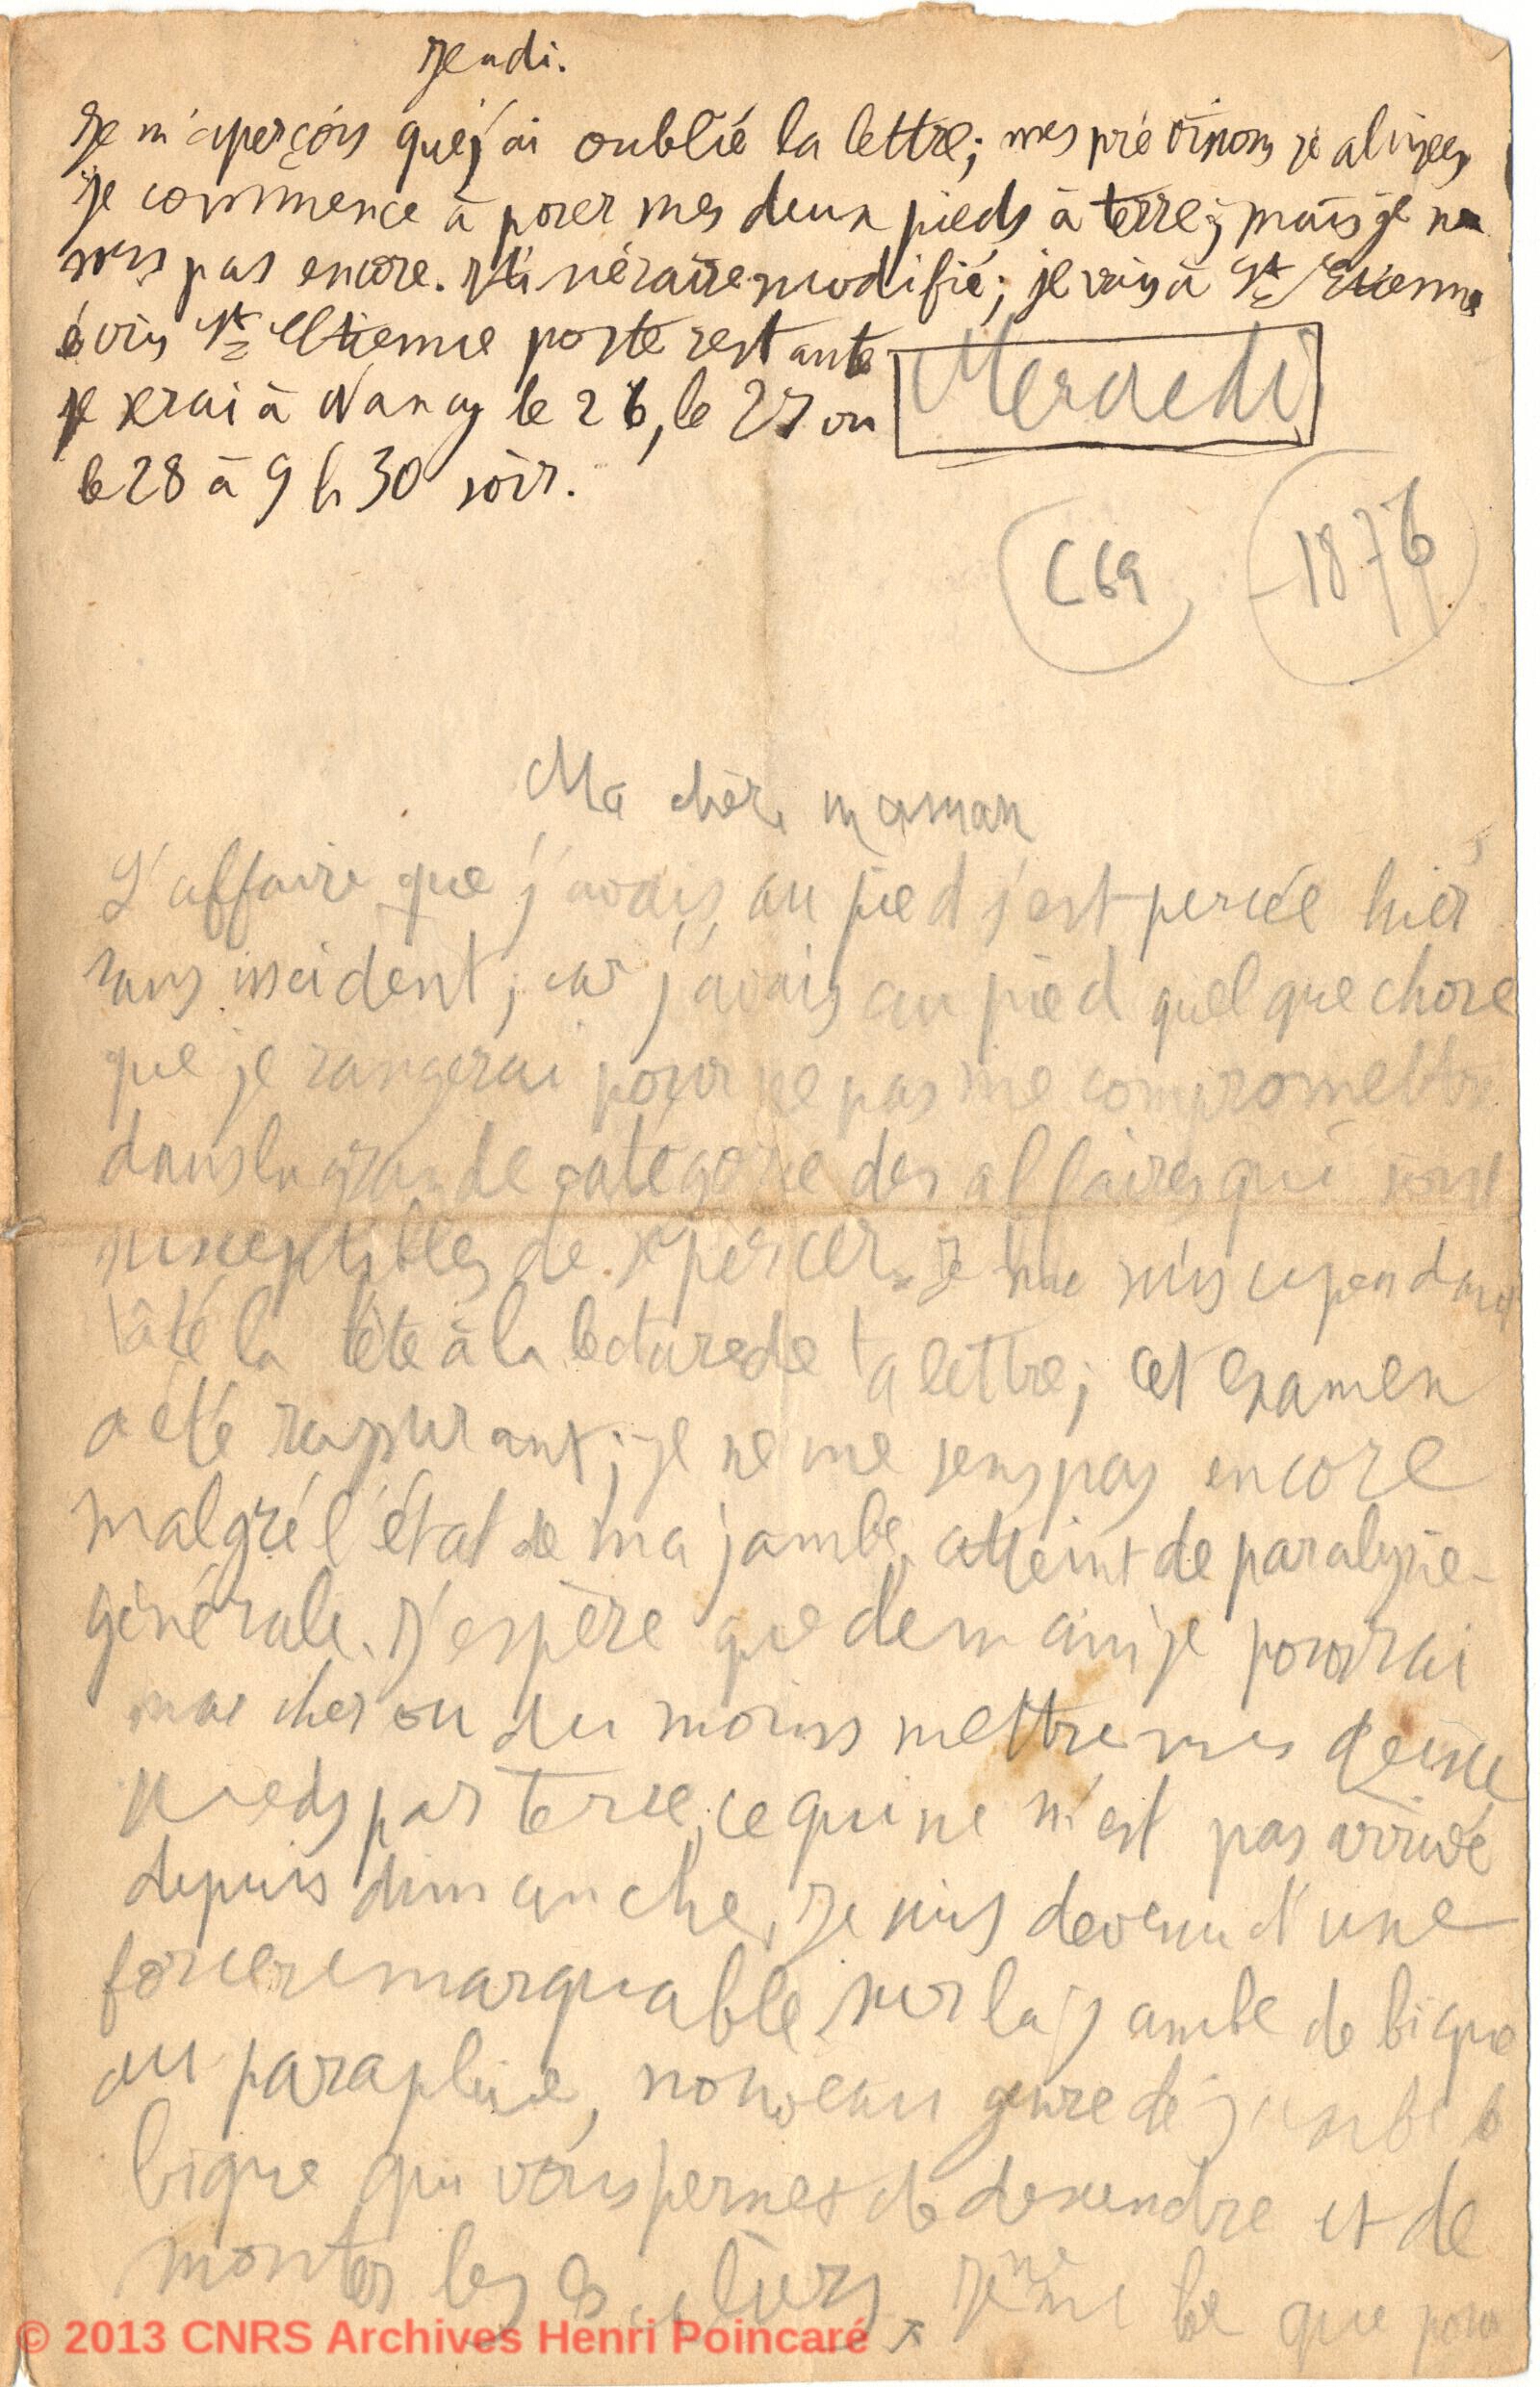 Jeudi.
Je m'aperçois que j'ai oublié la lettre; mes prévisions se réalisent
je commence à poser mes deux pieds à terre; mais je ne
sors pas encore. Itinéraire modifié; je vais à St Etienne
écris St Etienne poste restante
je serai à Nancy le 26, le 27 ou
le 28 à 9 h 30 soir.
Mercredi
C69
1876
Ma chère maman
L'affaire que j'avais au pied s'est percée hier
sans incident; car j'avais au pied quelque chose
que je rangerai pour ne pas me compromettre
dans la grande catégorie des affaires qui sont
susceptibles de se percer. Je me suis cependant
tâté la tête à la lecture de ta lettre; cet examen
a été rassurant; je ne me sens pas encore
malgré l'état de ma jambe atteint de paralysie
générale. J'espère que demain je pourrai
marcher ou du moins mettre mes deux
pieds par terre, ce qui ne m'est pas arrivé
depuis dimanche. Je suis devenu d'une
force remarquable sur la jambe de bique
au parapluie, nouveau genre de jambe de
bique qui vous permet de descendre et de
monter les escaliers. Je ne que pour
© 2013 CNRS Archives Henri Poincaré